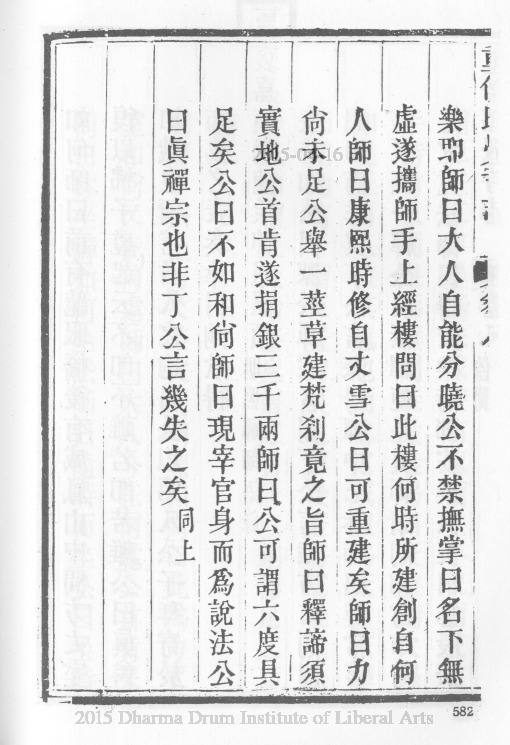 樂耶師曰大人自能分曉公不禁撫掌曰名下無
虛遂攜師手上經樓問曰此樓何時所建創自何
人師曰康熙時修自大雪公曰可重建矣師曰力
尙未足公舉一莖草建梵剎竟之旨師曰釋諦須
實地公首肯遂捐銀三千兩師曰公可謂六度具
足矣公曰不如和尙師曰現宰官身而爲說法公
曰眞禪宗也非丁公言幾失之矣同上
582
2015 Dharma Drum Institute of Liberal Arts